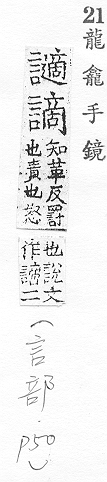 21 龍龕手鏡
讁謫
知革反罰
也責也怒
也說文
作謫二
(言部 p50)